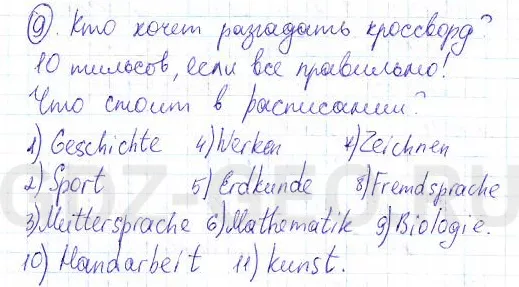 9. Кто хочет разгадать кроссворд?
10 тильсов, если все правильно!
Что стоит в расписании?
1) Geschichte 4) Werken 7) Zeichnen
2) Sport 5) Erdkunde 8) Fremdsprache
3) Muttersprache 6) Mathematik 9) Biologie.
10) Handarbeit 11) Kunst.